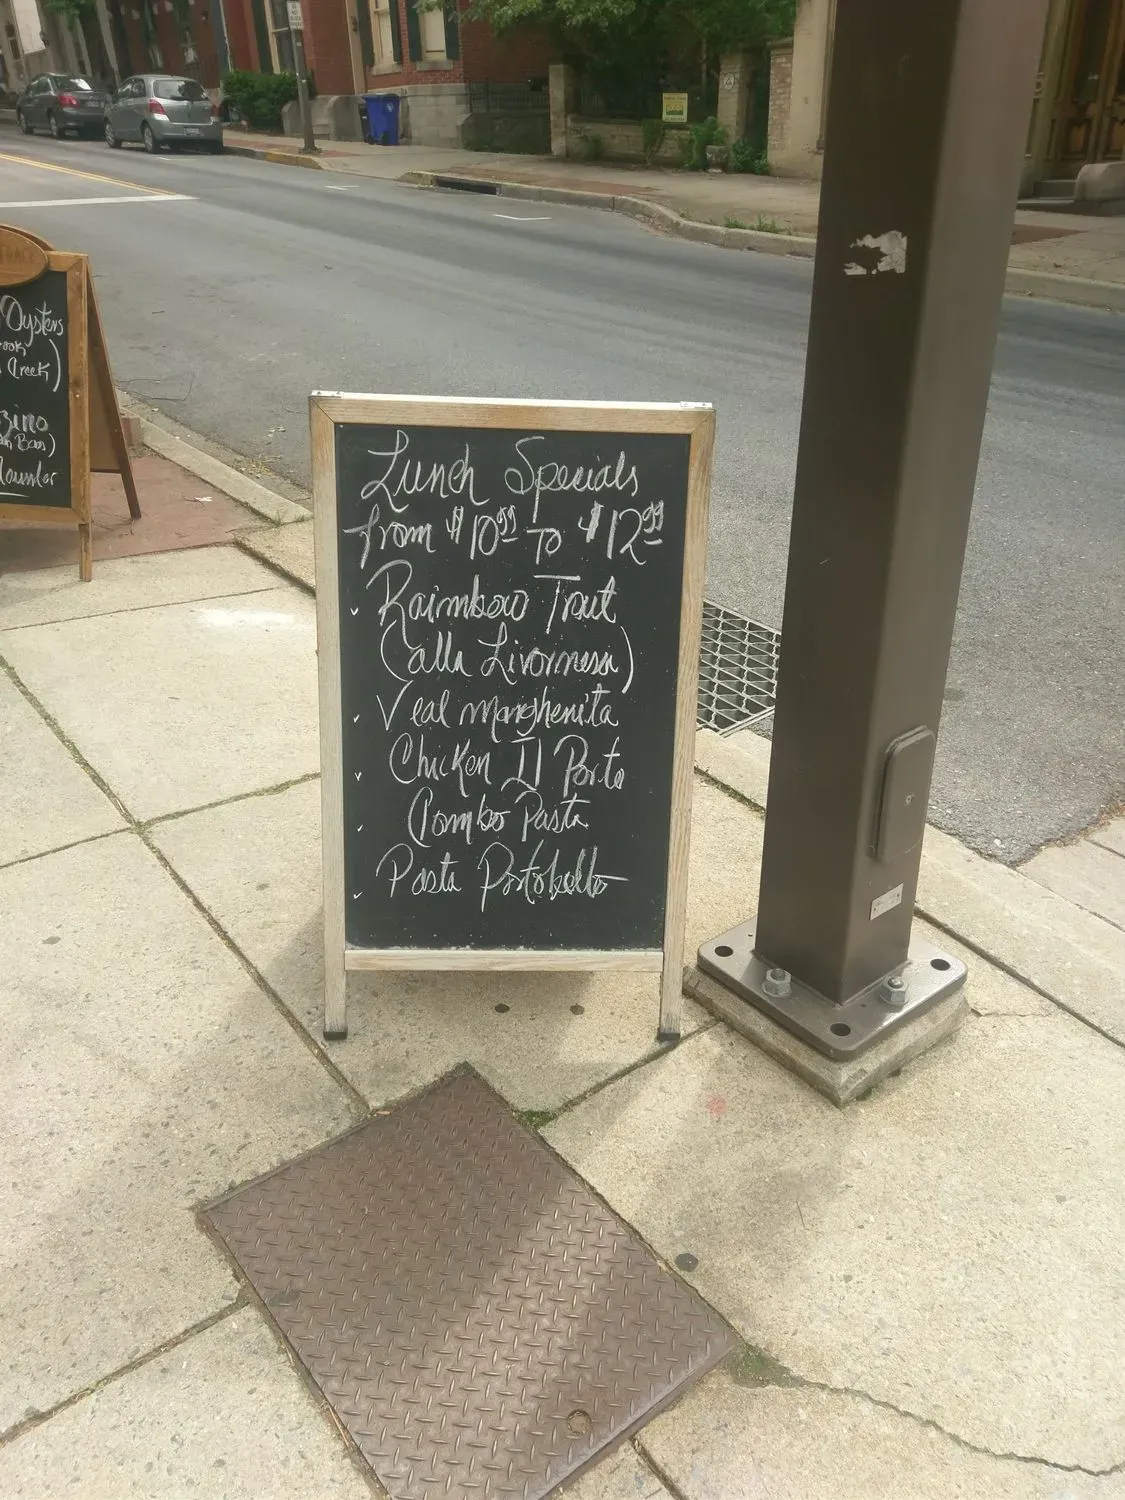 Oysters
Creek)
zino
Lunch Specials
from $10.99 To $12.99
Raimbow Trout
(alla Livornesa)
Veal Marghenita
Chicken Il Porto
Combo Pasta
Pasta Portobello